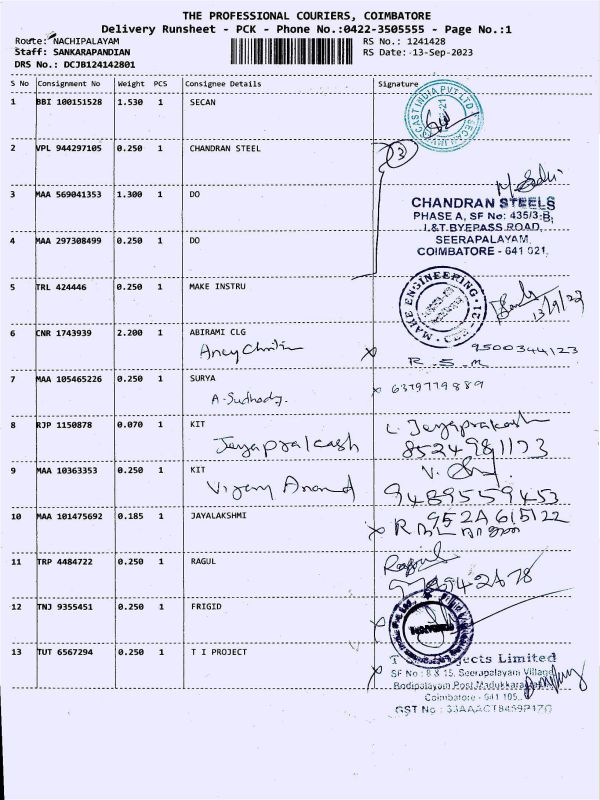 THE PROFESSIONAL COURIERS, COIMBATORE
Delivery Runsheet - PCK - Phone No.:0422-3505555 - Page No.:1
Route: NACHIPALAYAM RS No.: 1241428
Staff: SANKARAPANDIAN RS Date:-13-Sep-2023
DRS No.: DCJB124142801
S No Consignment No Weight PCS Consignee Details Signature
1 BBI 100151528 1.530 1 SECAN
2 VPL 944297105 0.250 1 CHANDRAN STEEL 3
3 MAA 569041353 1.300 1 DO
CHANDRAN STEELS
PHASE A, SF No: 435/3-B,
L&T.BYEPASS ROAD,
4 MAA 297308499 0.250 1 DO SEERAPALAYAM,
COIMBATORE - 641 021,
5 TRL 424446 0.250 1 MAKE INSTRU MAKE ENGINEERING
13/9/23
6 CNR 1743939 2.200 1 ABIRAMI CLG
9500344123
R. S. M
7 MAA 105465226 0.250 1 SURYA
A-Sudhody. 6379779889
8 RJP 1150878 0.070 1 KIT L. Jeyaprakash
Jeyaprakash 8524981173
9 MAA 10363353 0.250 1 KIT
Vijay Anand 9489559453
10 MAA 101475692 0.185 1 JAYALAKSHMI
11 TRP 4484722 0.250 1 RAGUL Ragul
12 TNJ 9355451 0.250 1 FRIGID
13 TUT 6567294 0.250 1 T I PROJECT
Limited
SF No : 8 & 15, Seerapalayam Village
Bodipalayam Post, Madukkarai
Coimbatore - 641 105.
GST No : 33AAACT8459P1ZG